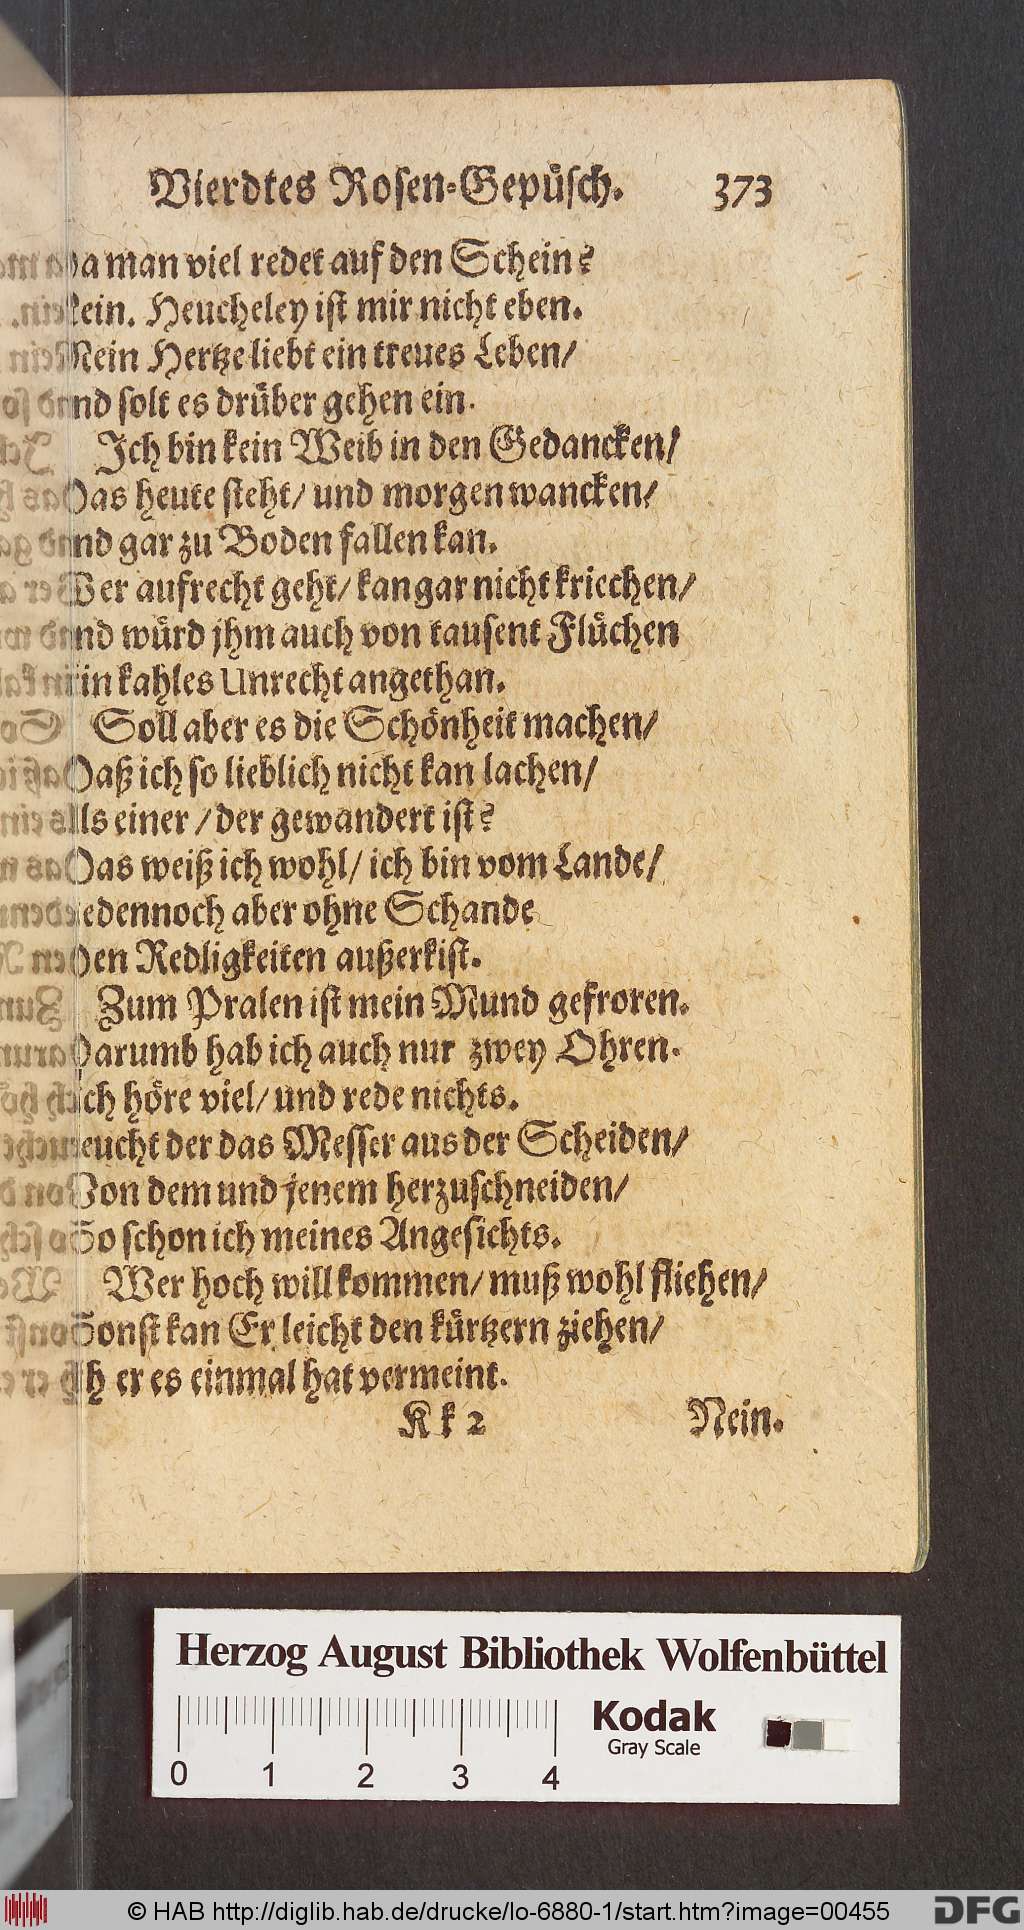 Vierdtes Rosen-Gepüsch. 373
Da man viel redet auf den Schein?
Nein. Heucheley ist mir nicht eben.
Mein Hertze liebt ein treues Leben/
und solt es drüber gehen ein.
Ich bin kein Weib in den Gedancken/
Das heute steht/ und morgen wancken/
und gar zu Boden fallen kan.
Wer aufrecht geht/ kan gar nicht kriechen/
und würd jhm auch von tausent Flüchen
Ein kahles Unrecht angethan.
Soll aber es die Schönheit machen/
Daß ich so lieblich nicht kan lachen/
Als einer / der gewandert ist?
Das weiß ich wohl/ ich bin vom Lande/
Jedennoch aber ohne Schande
Den Redligkeiten außerkist.
Zum Pralen ist mein Mund gefroren.
Darumb hab ich auch nur zwey Ohren.
Ich höre viel/ und rede nichts.
Zeucht der das Messer aus der Scheiden/
Von dem und jenem herzuschneiden/
So schon ich meines Angesichts.
Wer hoch will kommen/ muß wohl fliehen/
Sonst kan Er leicht den kürtzern ziehen/
Eh er es einmal hat vermeint.
Kk 2 Nein.
Herzog August Bibliothek Wolfenbüttel
Kodak
Gray Scale
0 1 2 3 4
© HAB http://diglib.hab.de/drucke/lo-6880-1/start.htm?image=00455
DFG